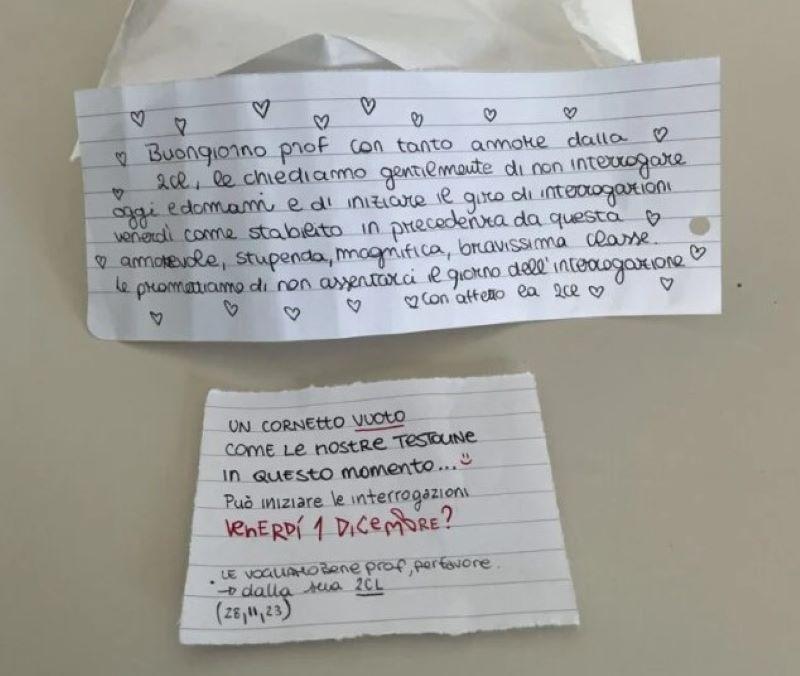 Buongiorno prof con tanto amore dalla
2CL, le chiediamo gentilmente di non interrogare
oggi e domani e di iniziare il giro di interrogazioni
venerdì come stabilito in precedenza da questa
amorevole, stupenda, magnifica, bravissima classe.
Le promettiamo di non assentarci il giorno dell'interrogazione
Con affetto la 2CL
UN CORNETTO VUOTO
COME LE NOSTRE TESTOLINE
IN QUESTO MOMENTO...
Può iniziare le interrogazioni
VENERDÍ 1 DICEMBRE?
• LE VOGLIAMO BENE prof, perfavore.
→ dalla sua 2CL
(28,11,23)